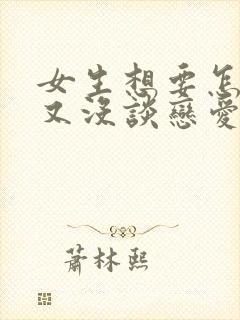 女生想要怎
又沒談戀愛
蕭林熙